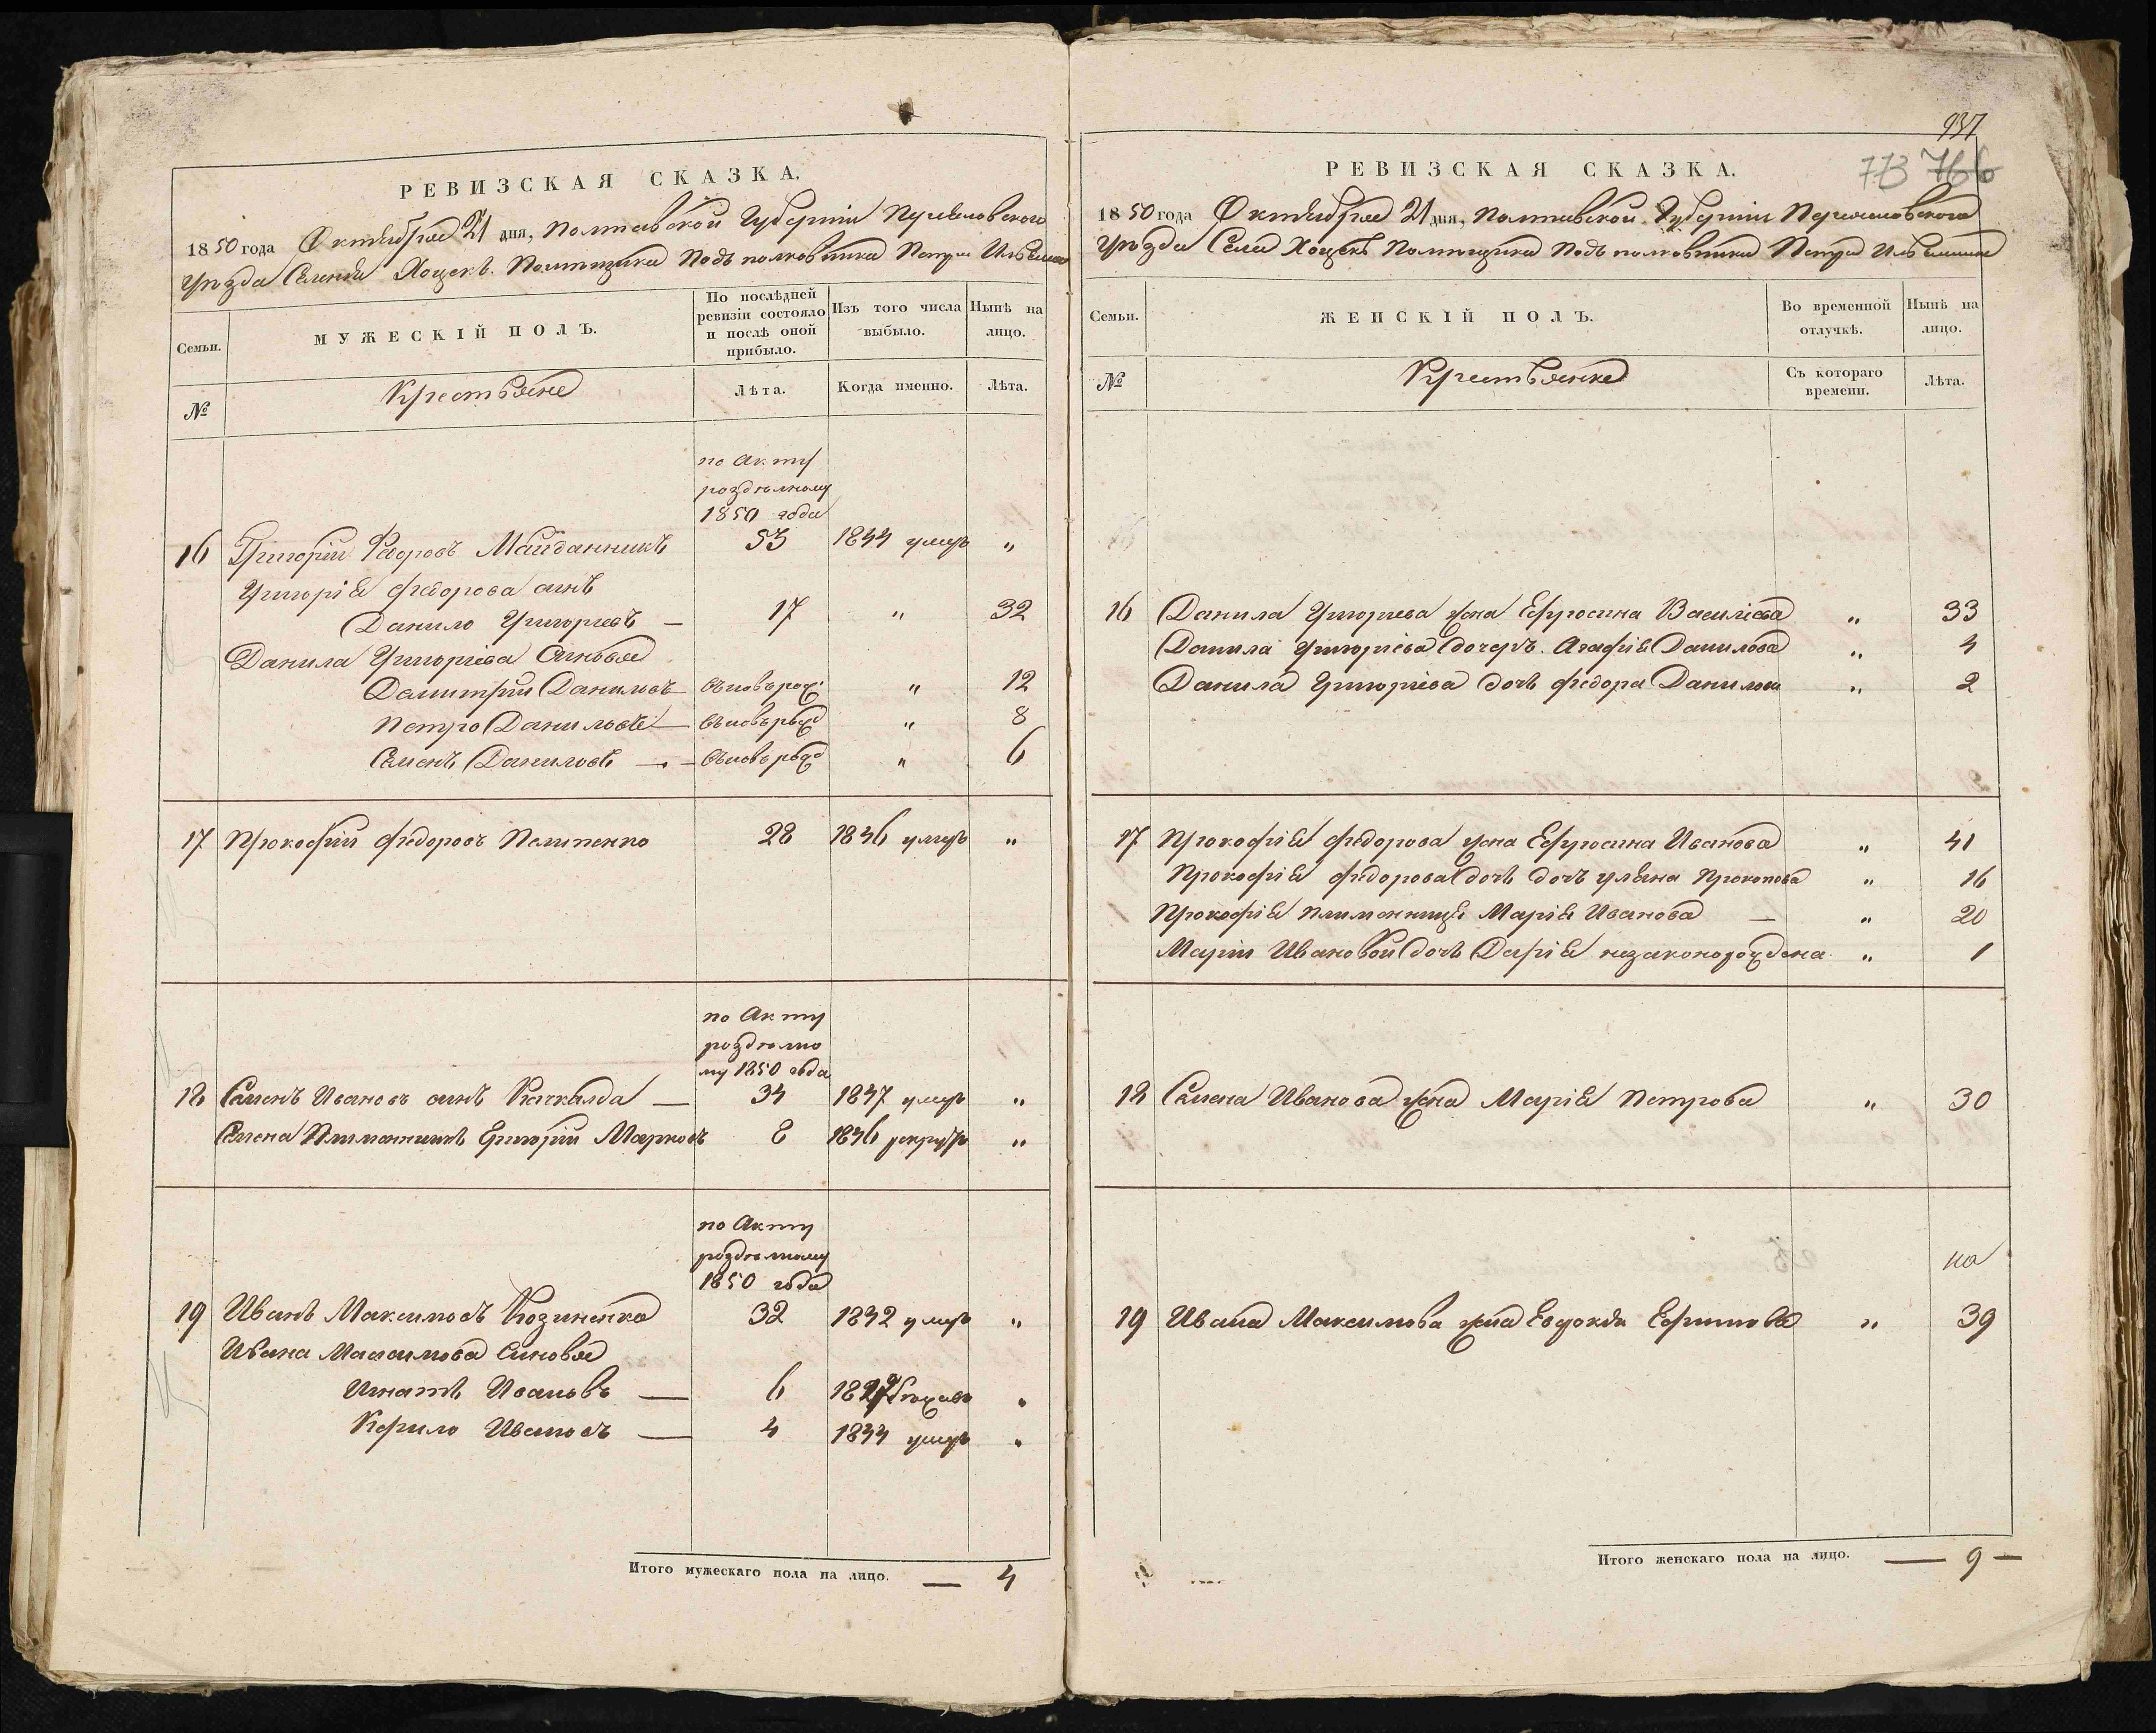 РЕВИЗСКАЯ СКАЗКА.
1850 года Октября 21 дня, Полтавской Губерніи Переяславского
уѣзда Селенія Хоцекъ Помѣщика Подъ полковника Петра
Семьи.
МУЖЕСКІЙ ПОЛЪ.
По послѣдней ревизіи состояло и послѣ оной прибыло.
Изъ того числа выбыло.
Нынѣ на лицо.
№
Крестьяне
Лѣта.
Когда именно.
Лѣта.
по Акту
роздѣлному
1850 года
16 Григорій Федоровъ Майданникъ 53 1844 умер „
Григорія Федорова синъ
Данило Григориевъ — 17 „ 32
Данила Григоріева Синовья
Димитрій Даниловъ вновь рож „ 12
Петро Даниловъ — вновь рожд „ 8
Семенъ Даниловъ — вновь рожд „ 6
17 Прокофій Федоровъ Пелипенко 28 1846 умер „
по Акту
роздѣлно
му 1850 года
18 Семенъ Ивановъ синъ Качкалда — 34 1847 умер „
Семена Племянникъ Григорій Марковъ 8 1846 рекрут „
по Акту
роздѣлному
1850 года
19 Иванъ Максимовъ Козиненко 32 1842 умер „
Ивана Максимова Синовья
Игнатъ Ивановъ — 6 „
Кирило Ивановъ — 4 1844 умер „
Итого мужескаго пола на лицо. — 4
937
773 766
РЕВИЗСКАЯ СКАЗКА.
1850 года Октября 21 дня, Полтавской Губерніи Переяславского
уѣзда Села Хоцекъ Помѣщика Подъ полковника Петра
Семьи.
ЖЕНСКІЙ ПОЛЪ.
Во временной отлучкѣ.
Нынѣ на лицо.
№
Крестьянке
Съ котораго времени.
Лѣта.
16 Данила Григориева жена Ефросина Василіева „ 33
Данила Григоріева дочеръ Агафія Данилова „ 4
Данила Григориева дочь Федора Данилова „ 2
17 Прокофія Федорова жена Ефросина Иванова „ 41
Прокофія Федорова дочь дочь уляна Прокопова „ 16
Прокофія племянница Марія Иванова — „ 20
Маріи Ивановой дочь Дарія незаконорождена „ 1
18 Семена Иванова жена Марія Петрова „ 30
на
19 Ивана Максимова жена Евдокія Ефимова „ 39
Итого женскаго пола на лицо. — 9 —